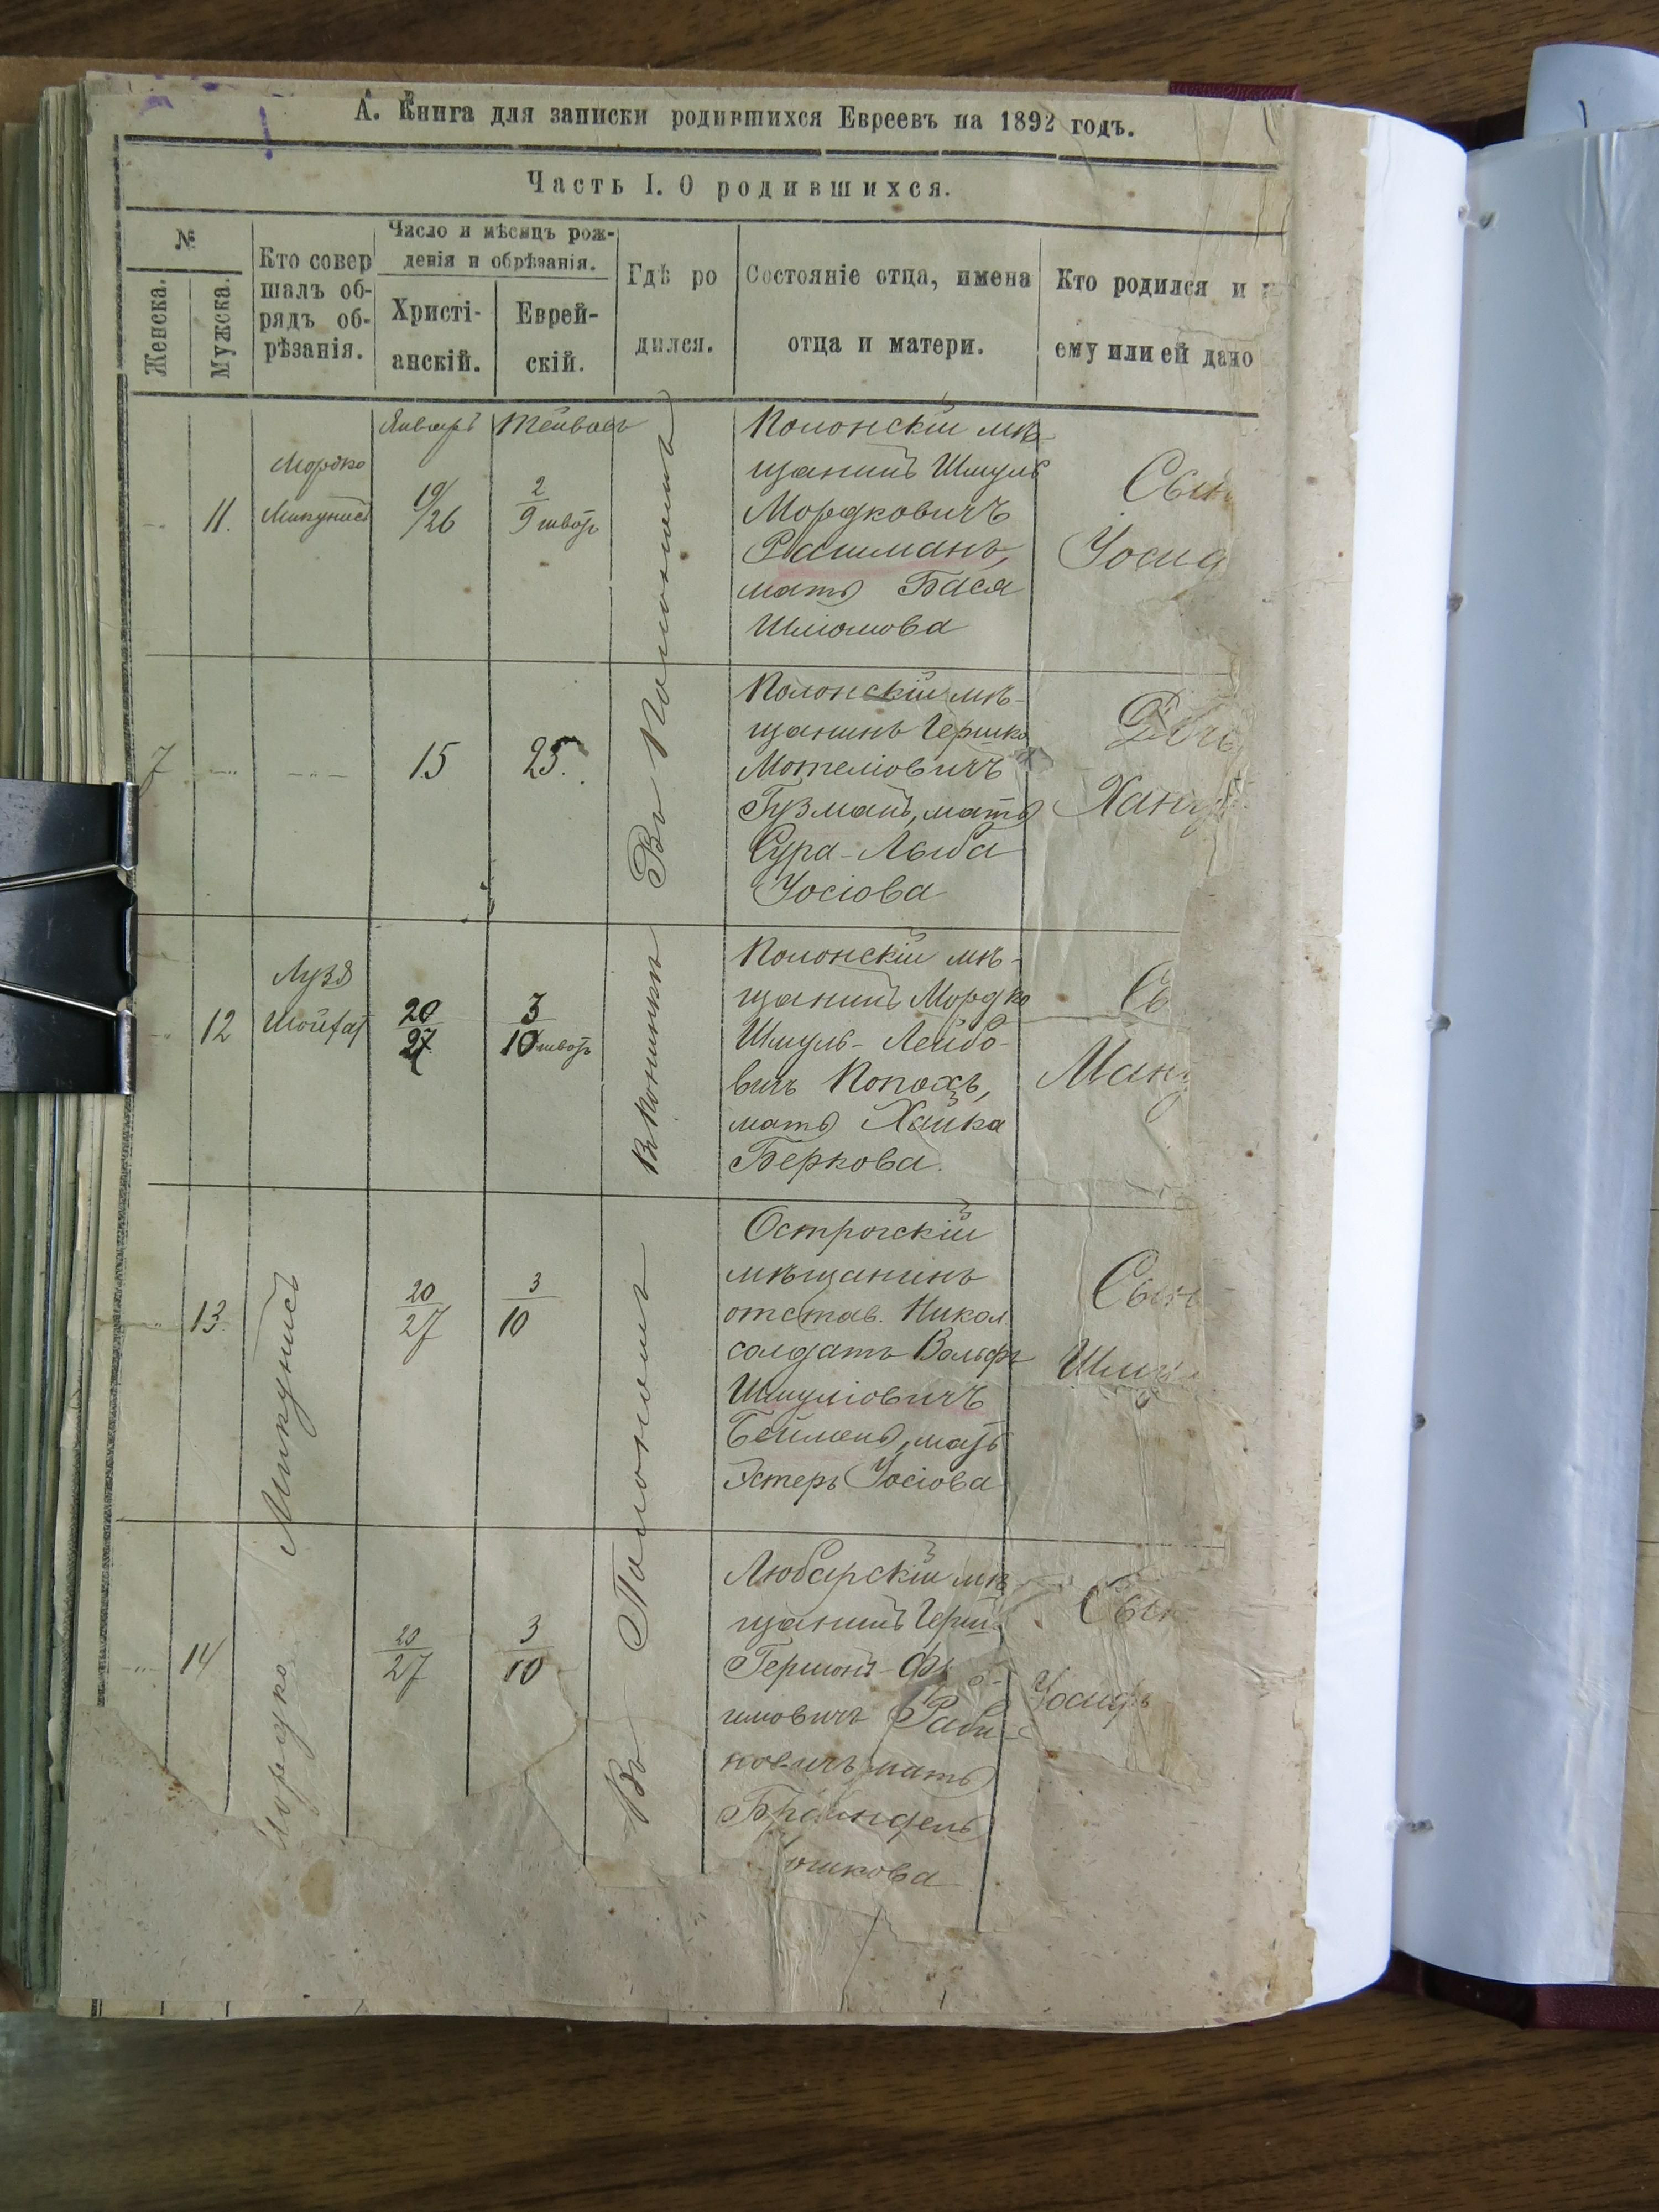 А. Книга для записки родившихся Евреевъ на 1892 годъ.
Часть I. О родившихся.
№
Женска.
Мужска.
Кто совер
шалъ об-
рядъ об-
рѣзанія.
Число и мѣсяцъ рож-
денія и обрѣзанія.
Христі-
анскій.
Еврей-
скій.
Гдѣ ро
дился.
Состояніе отца, имена
отца и матери.
Кто родился и
ему или ей дано
11.
Мордко
Микунисъ
Январь
19/26
Тейвосъ
2
9 швотъ
Въ Полономъ
Полонскій мѣ-
щанинъ Шмуль
Мордковичъ
Рашманъ,
мать Бася
Шліомова
Сынъ
7
15
25.
Полонскій мѣ-
щанинъ Гершко
Мотеліовичъ
Гузманъ, мать
Сура-Лыба
Іосіова
Дочь
12
20
27
3
10 швотъ
Полонскій мѣ-
щанинъ Мордко
Шмуль-Лейбо-
вичъ Копохъ,
мать Хайка
Беркова.
Сы
13.
Мордко Микунисъ
20
27
3
10
Въ Полономъ
Острогскій
мѣщанинъ
отстав. Никол.
солдатъ Вольфъ
Шмуліовичъ
мать
Эстеръ Іосіова
Сынъ
14
20
27
3
10
Любарскій мѣ
щанинъ
мать
Браиндель
ошкова
Сын
Іосифъ